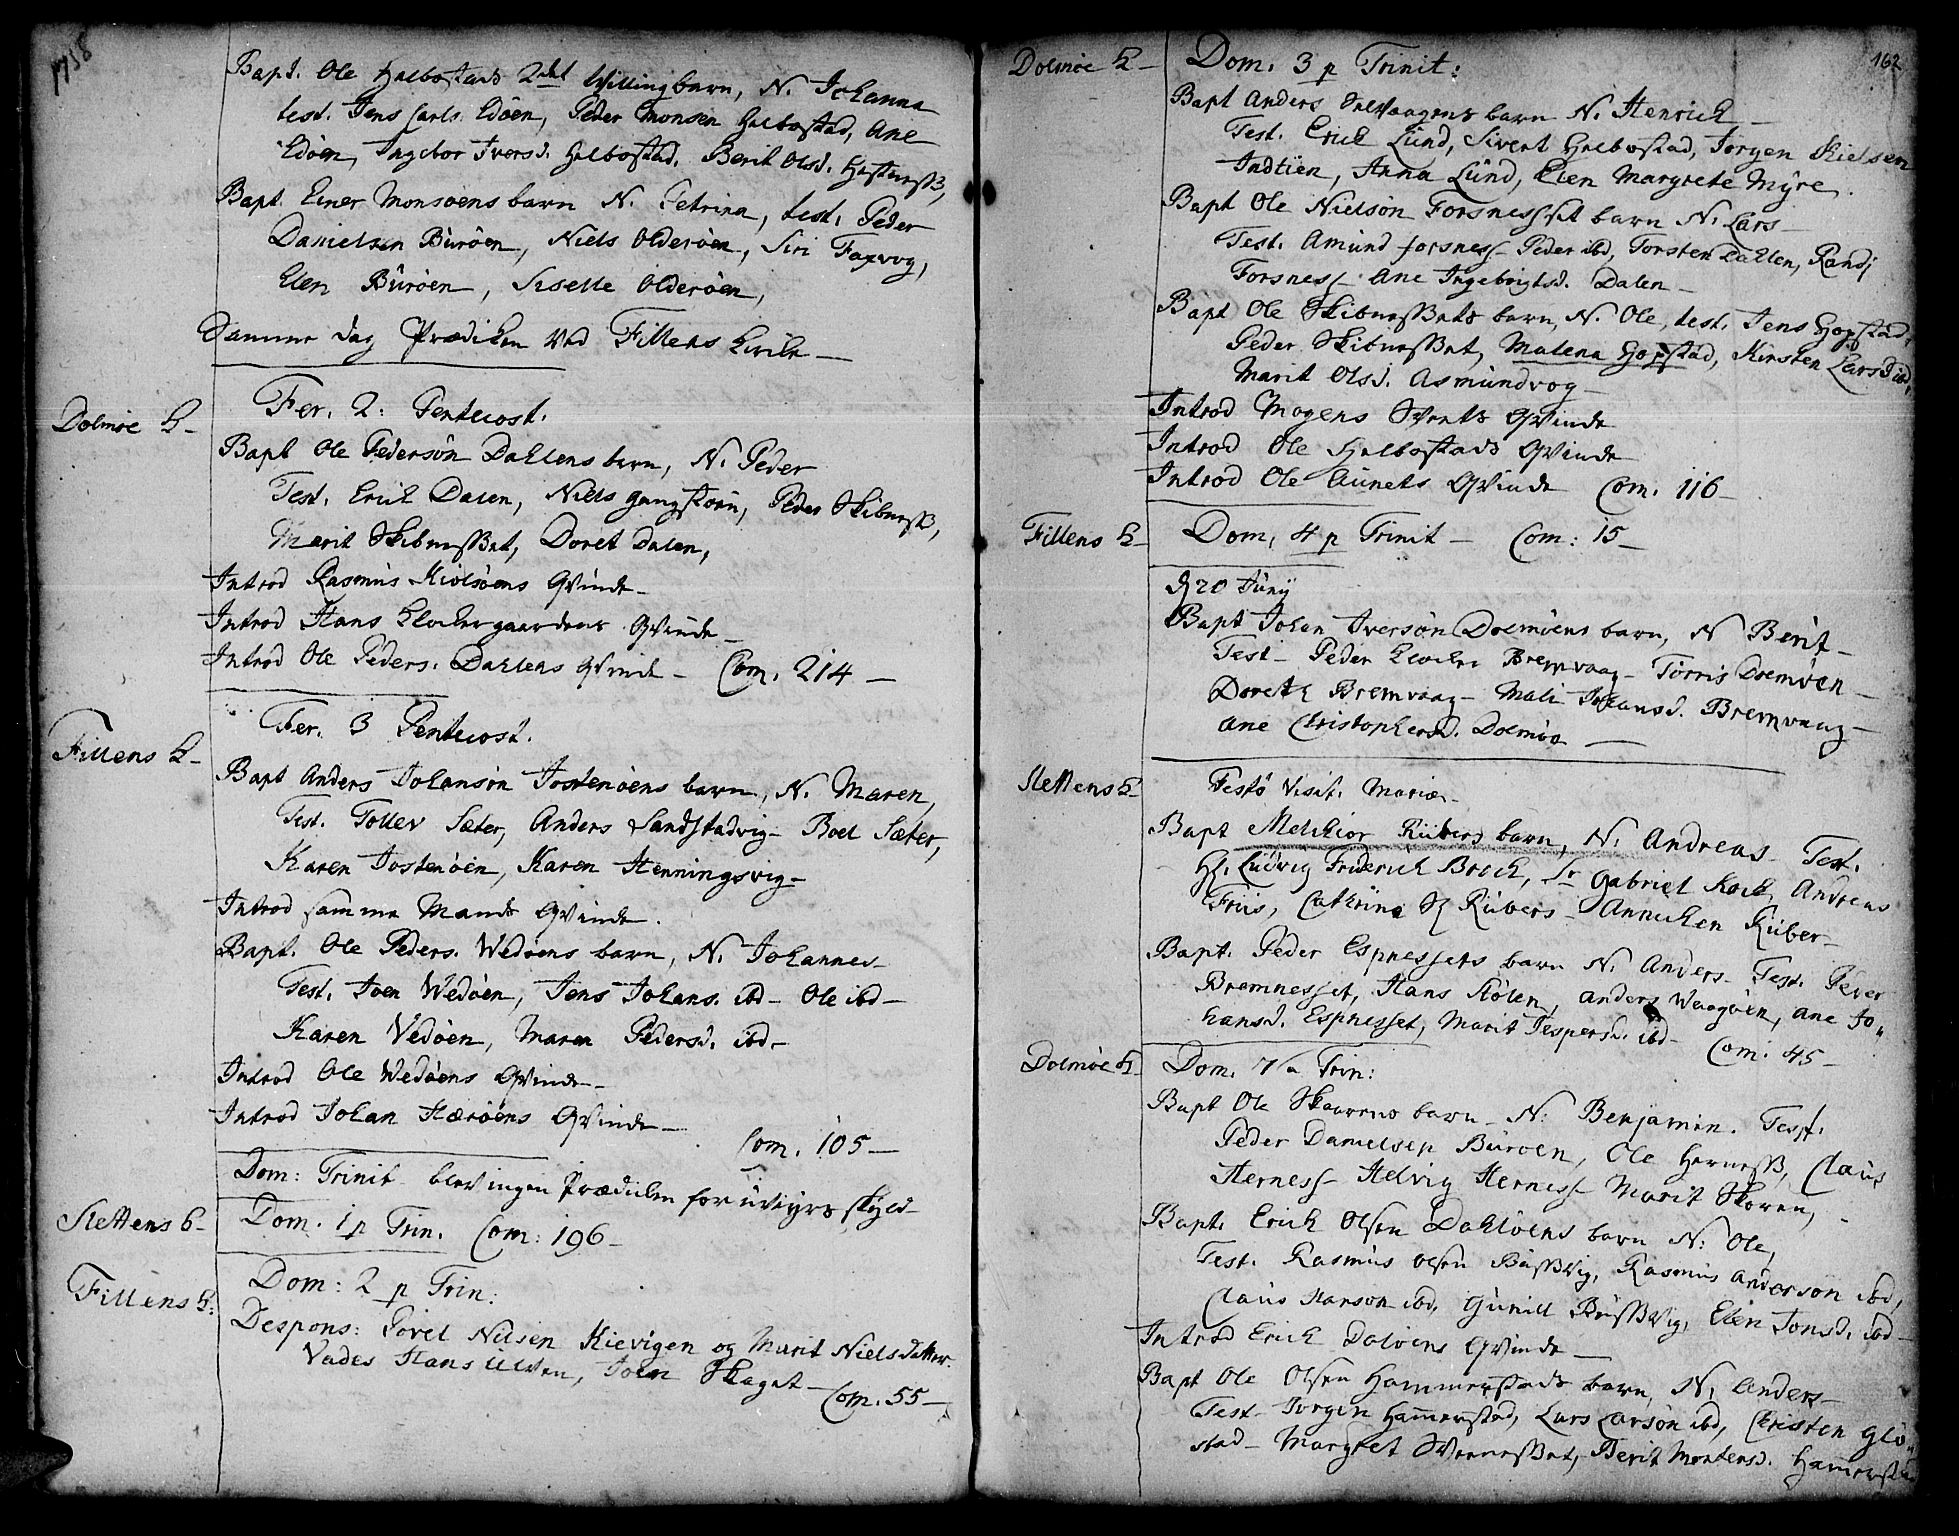 1758
Bapt. Ole Helbostads 2det tvillingbarn, N. Johanna
test. Jens Carls. Edöen, Peder Monsen Helbostad, Ane
Edöen, Ingebor Iversd. Helbostad. Berit Olsd. Hestness,
Bapt. Einer Monsöens barn N. Petrina, test. Peder
Danielsen Büröen, Niels Olderöen, Siri Faxvog,
Elen Büröen, Siselle Olderöen,
Samme dag Prædiken ved Fillens Kirke
Dolmöe K
Fer. 2: Pentecost.
Bapt Ole Pedersön Dahlens barn, N. Peder
Test. Erich Dalen, Niels Gangstöen, Peder Skibness,
Marit Skibnesset, Doret Dalen,
Introd Rasmus Kiolsöens Qvinde
Introd Hans Klockergaardens Qvinde
Introd Ole Peders. Dahlens Qvinde Com. 214
Fillens K
Fer. 3 Pentecost.
Bapt Anders Johansön Jostenöens barn, N. Maren,
Test. Tollev Sæter, Anders Sandstadvig Boel Sæter,
Karen Jostenöen, Karen Henningsvig
Introd samme Mands Qvinde.
Bapt. Ole Peders. Wedöens barn, N. Johannes
Test. Joen Wedöen, Jens Johans. ibd Ole ibd
Karen Vedöen, Maren Pedersd. ibd
Introd Ole Wedöens Qvinde
Introd Johan Hæröens Qvinde Com. 105
Dom: Trinit blev ingen Prædiken for uveyrs skyld
Slettens K Dom. 1 p Trin. Com: 196
Fillens K: Dom: 2 p Trin:
Despons: Povel Nilsen Kievigen og Marit Nielsdatter.
Vades Hans Ulven, Joen Skaget Com. 55
162
Dolmöe K Dom. 3 p Trinit:
Bapt Anders barn N. Henrich
Test. Erich Lund, Sivert Helbostad, Jörgen Kielsen
Indtien, Anna Lünd, Elen Margrete Myre.
Bapt Ole Nielsön Forsnesset barn N. Lars
Test. Amund Forsness Peder ibd, Torsten Dahlen, Randj
Forsness Ane Ingebrigtsd. Dalen
Bapt Ole Skibnessets barn, N. Ole, test. Jens Hopstad,
Peder Skibnesset, Malena Hopstad, Kirsten Larsd ibd,
Marit Olsd. Asmundvog
Introd Mogens Qvinde
Introd Ole Helbostads Qvinde
Introd Ole Aunets Qvinde Com. 116
Fillens K Dom, 4 p Trinit Com: 15
d 20 Junij
Bapt Johan Iversön Dolmöens barn, N Berit
Test Peder Klocker Bremvaag Torris Dolmöen
Doreth Bremvaag Mali Johansd. Bremvaag
Ane Christophersd. Dolmöe
Slettens K Festo Visit. Mariæ
Bapt Melchior Rübers barn, N. Andreas Test.
Hr. Ludvig Friderich Broch, Sr Gabriel Koch, Andreas
Friis, Cathrina Sl Rübers Annichen Rüber
Bapt. Peder Espnessets barn N. Anders Test. Peder
Bremnesset, Hans Stölen, Anders Waagöen, Ane Jo„
hansd. Espnesset, Marit Jespersd. ibd Com: 45
Dolmöe K Dom. 7 a Trin:
Bapt Ole Skaarens barn N: Benjamin. Test.
Peder Danielsen Büroen, Ole Herness, Claus
Herness Helvig Herness Marit Skoren,
Bapt. Erich Olsen Dahlöens barn N: Ole,
Test. Rasmus Olsen Bussvig, Rasmus Anderson ibd,
Claus Hanson ibd, Gunill Bussvig, Elen Jonsd. ibd
Introd Erich Dalöens Qvinde
Bapt Ole Olsen Hammerstads barn, N. Anders
Test Jörgen Hamerstad, Lars Larsön ibd, Christen Glö„
stad Margret Bert Mortensd. Hamerstad